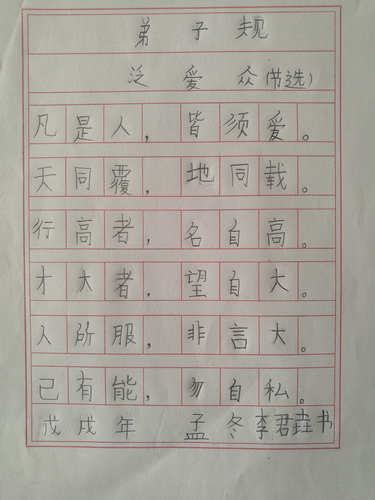 弟子规
泛爱众(节选)
凡是人，皆须爱。
天同覆，地同载。
行高者，名自高。
才大者，望自大。
人所服，非言大。
已有能，勿自私。
戊戌年 孟冬李君垚书